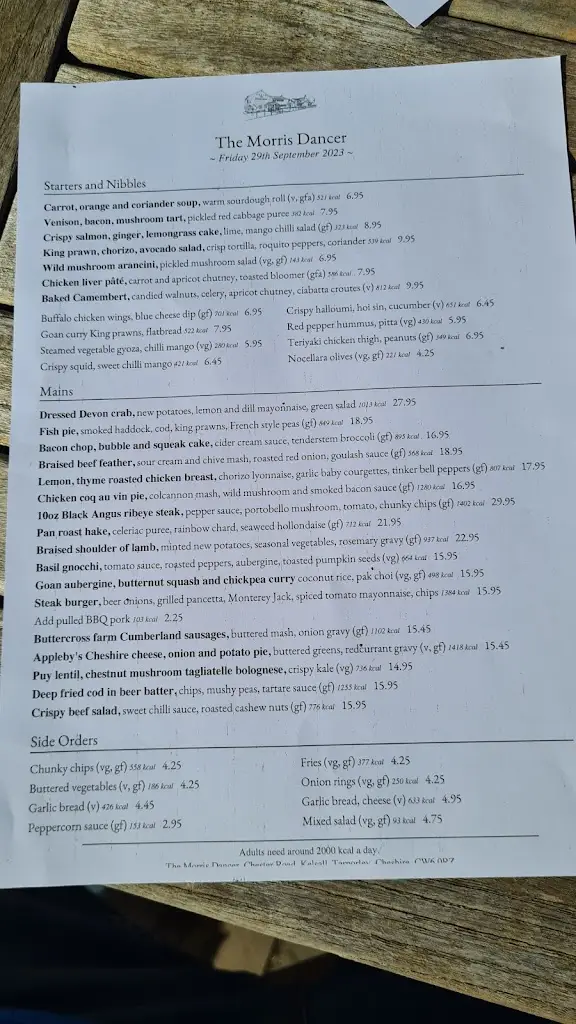 The Morris Dancer
~ Friday 29th September 2023 ~
Starters and Nibbles
Carrot, orange and coriander soup, warm sourdough roll (v, gfa) 521 kcal 6.95
Venison, bacon, mushroom tart, pickled red cabbage puree 392 kcal 7.95
Crispy salmon, ginger, lemongrass cake, lime, mango chilli salad (gf) 323 kcal 8.95
King prawn, chorizo, avocado salad, crisp tortilla, roquito peppers, coriander 539 kcal 9.95
Wild mushroom arancini, pickled mushroom salad (vg, gf) 143 kcal 6.95
Chicken liver pâté, carrot and apricot chutney, toasted bloomer (gfa) 586 kcal 7.95
Baked Camembert, candied walnuts, celery, apricot chutney, ciabatta croutes (v) 812 kcal 9.95
Buffalo chicken wings, blue cheese dip (gf) 701 kcal 6.95
Goan curry King prawns, flatbread 522 kcal 7.95
Steamed vegetable gyoza, chilli mango (vg) 280 kcal 5.95
Crispy squid, sweet chilli mango 421 kcal 6.45
Crispy halloumi, hoi sin, cucumber (v) 651 kcal 6.45
Red pepper hummus, pitta (vg) 430 kcal 5.95
Teriyaki chicken thigh, peanuts (gf) 349 kcal 6.95
Nocellara olives (vg, gf) 221 kcal 4.25
Mains
Dressed Devon crab, new potatoes, lemon and dill mayonnaise, green salad 1013 kcal 27.95
Fish pie, smoked haddock, cod, king prawns, French style peas (gf) 649 kcal 18.95
Bacon chop, bubble and squeak cake, cider cream sauce, tenderstem broccoli (gf) 895 kcal 16.95
Braised beef feather, sour cream and chive mash, roasted red onion, goulash sauce (gf) 568 kcal 18.95
Lemon, thyme roasted chicken breast, chorizo lyonnaise, garlic baby courgettes, tinker bell peppers (gf) 807 kcal 17.95
Chicken coq au vin pie, colcannon mash, wild mushroom and smoked bacon sauce (gf) 1280 kcal 16.95
10oz Black Angus ribeye steak, pepper sauce, portobello mushroom, tomato, chunky chips (gf) 1402 kcal 29.95
Pan roast hake, celeriac puree, rainbow chard, seaweed hollondaise (gf) 712 kcal 21.95
Braised shoulder of lamb, minted new potatoes, seasonal vegetables, rosemary gravy (gf) 937 kcal 22.95
Basil gnocchi, tomato sauce, roasted peppers, aubergine, toasted pumpkin seeds (vg) 664 kcal 15.95
Goan aubergine, butternut squash and chickpea curry coconut rice, pak choi (vg, gf) 498 kcal 15.95
Steak burger, beer onions, grilled pancetta, Monterey Jack, spiced tomato mayonnaise, chips 1384 kcal 15.95
Add pulled BBQ pork 103 kcal 2.25
Buttercross farm Cumberland sausages, buttered mash, onion gravy (gf) 1102 kcal 15.45
Appleby's Cheshire cheese, onion and potato pie, buttered greens, redcurrant gravy (v, gf) 1418 kcal 15.45
Puy lentil, chestnut mushroom tagliatelle bolognese, crispy kale (vg) 736 kcal 14.95
Deep fried cod in beer batter, chips, mushy peas, tartare sauce (gf) 1255 kcal 15.95
Crispy beef salad, sweet chilli sauce, roasted cashew nuts (gf) 776 kcal 15.95
Side Orders
Chunky chips (vg, gf) 558 kcal 4.25
Buttered vegetables (v, gf) 186 kcal 4.25
Garlic bread (v) 426 kcal 4.45
Peppercorn sauce (gf) 153 kcal 2.95
Fries (vg, gf) 377 kcal 4.25
Onion rings (vg, gf) 250 kcal 4.25
Garlic bread, cheese (v) 633 kcal 4.95
Mixed salad (vg, gf) 93 kcal 4.75
Adults need around 2000 kcal a day.
The Morris Dancer, Chester Road, Kelsall, Tarporley, Cheshire, CW6 0RZ